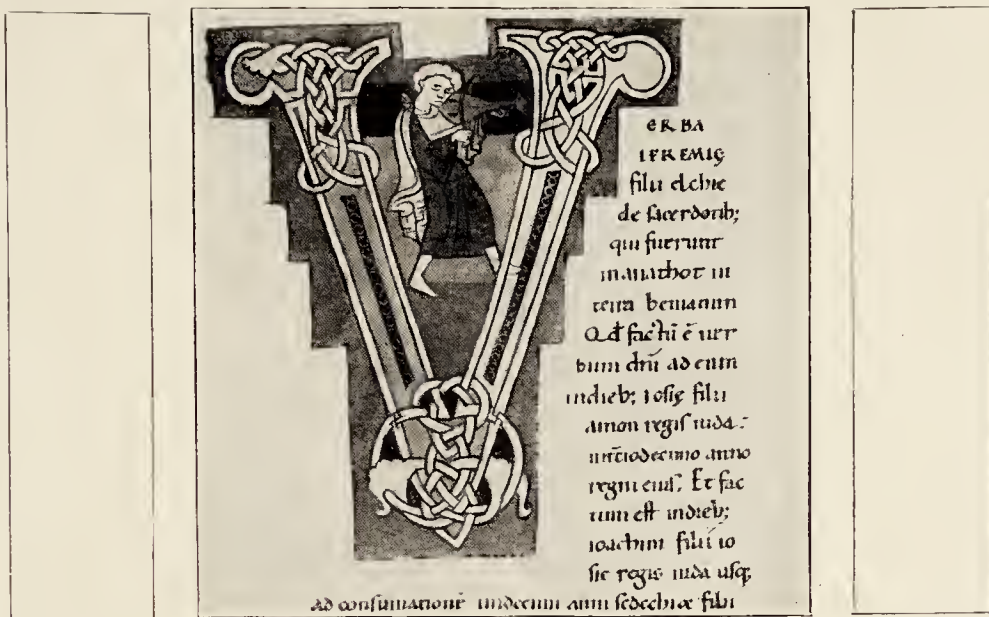 V
ERBA
IEREMIĘ
filii elchie
de sacerdotib;
qui fuerunt
in anathot in
terra beniamin
Qd̄ factū ē uer
bum dn̄i ad eum
in dieb; iosię filii
amon regis iuda.
in tc̄iodecimo anno
regni eius. Et fac
tum est in dieb;
ioachim filii io
sie regis iuda usq;
ad consumationē undecimi anni sedechiæ filii